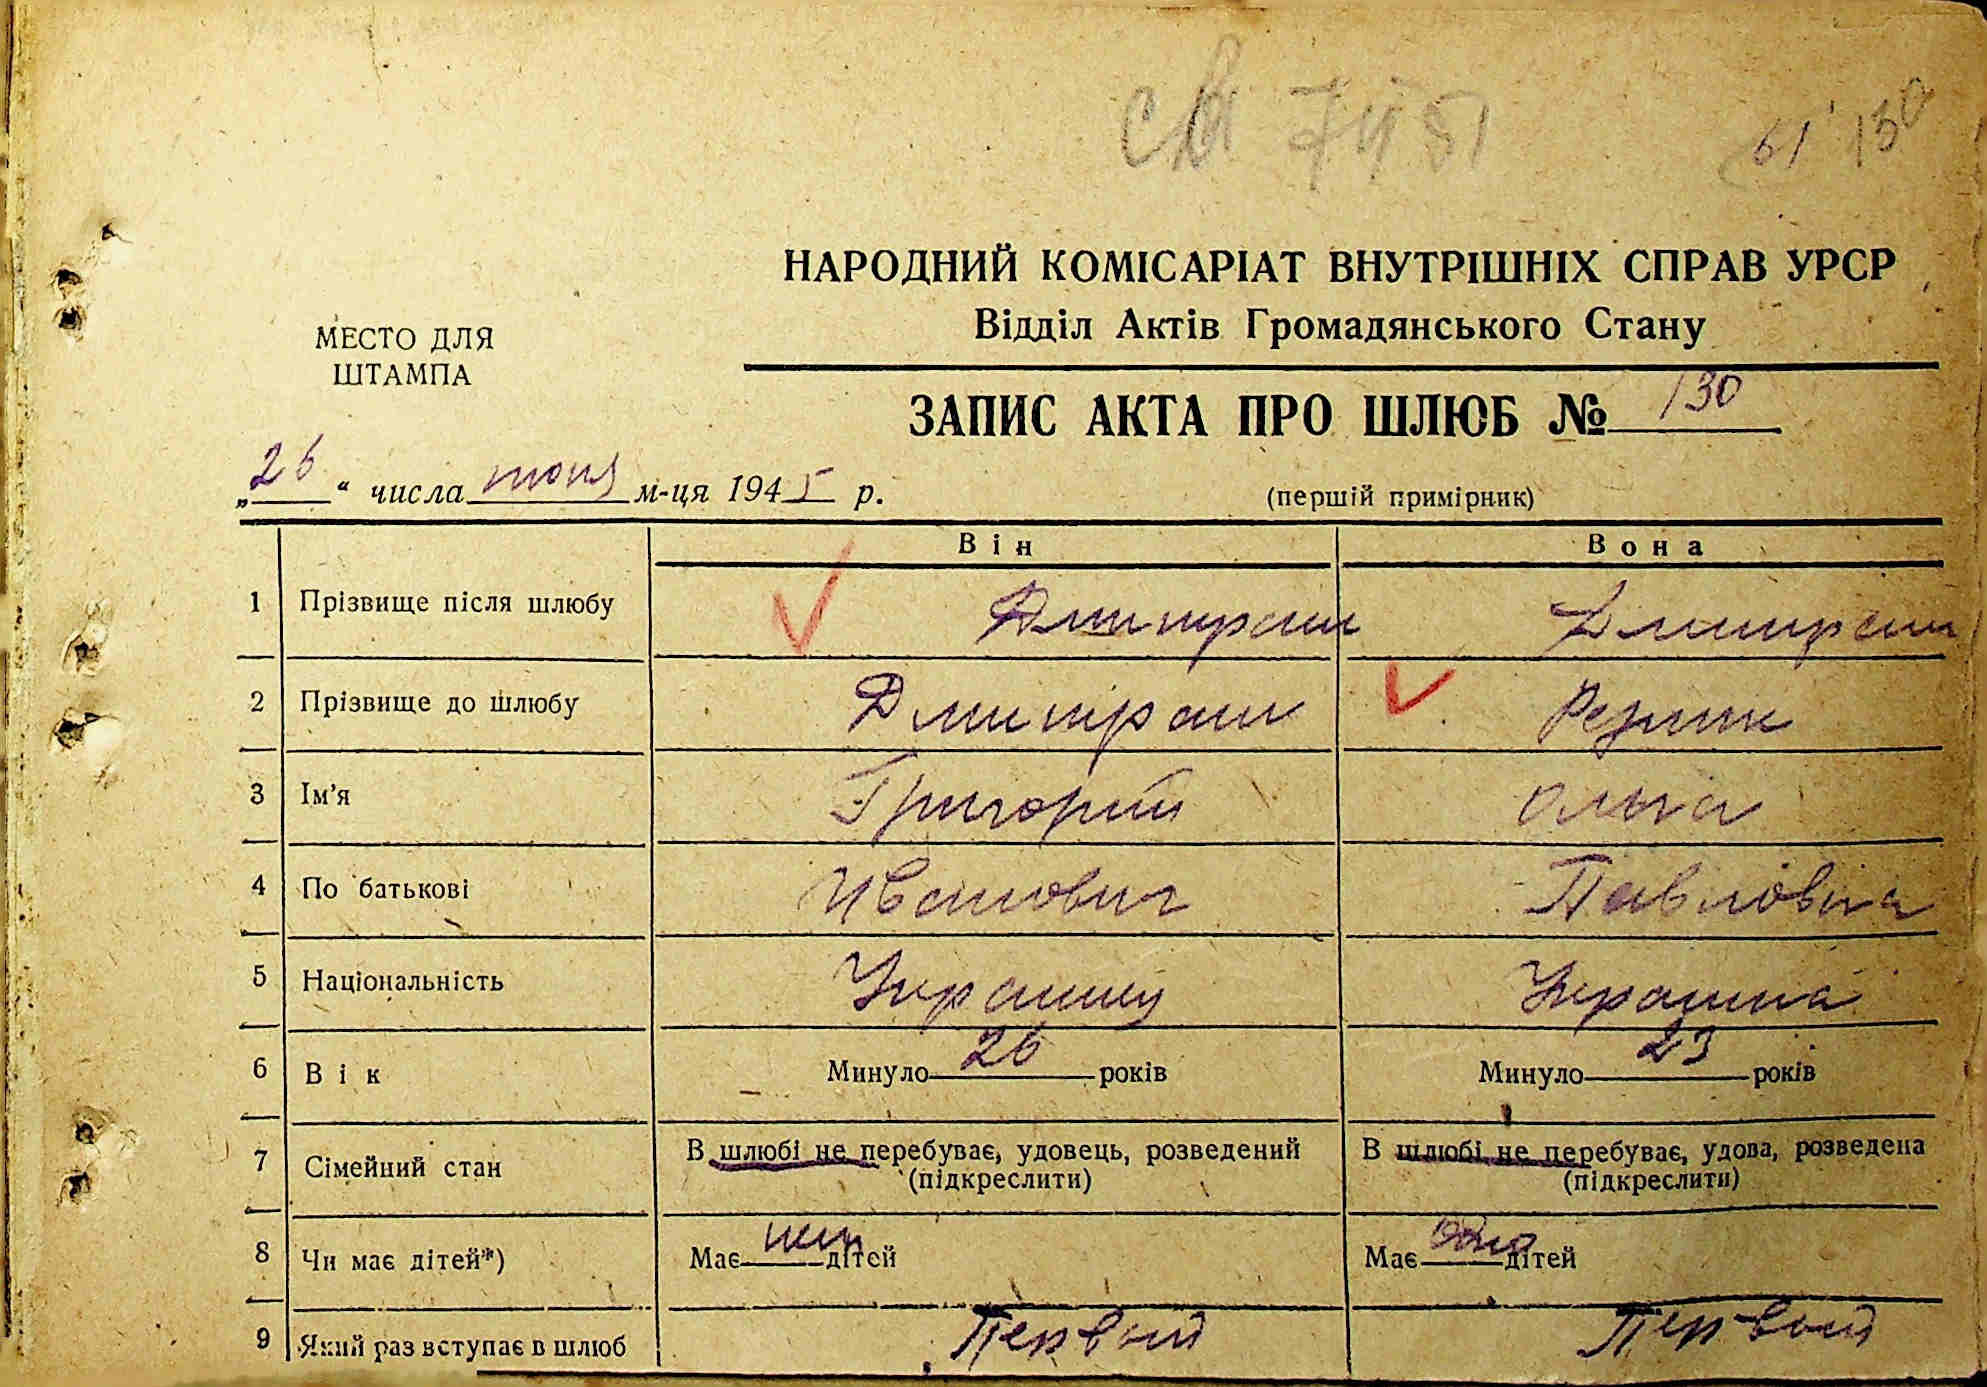 61 130
НАРОДНИЙ КОМІСАРІАТ ВНУТРІШНІХ СПРАВ УРСР
Відділ Актів Громадянського Стану
МЕСТО ДЛЯ
ШТАМПА
ЗАПИС АКТА ПРО ШЛЮБ № 130
„26“ числа июня м-ця 1945 р.
(першій примірник)
Він Вона
1 Прізвище після шлюбу Дмитраш Дмитраш
2 Прізвище до шлюбу Дмитраш Резник
3 Ім'я Григорий Ольга
4 По батькові Иванович Павловна
5 Національність Украинец Украинка
6 Вік Минуло 26 років Минуло 23 років
7 Сімейний стан В шлюбі не перебуває, удовець, розведений В шлюбі не перебуває, удова, розведена
(підкреслити) (підкреслити)
8 Чи має дітей*) Має нет дітей Має одно дітей
9 Який раз вступає в шлюб Первый Первый